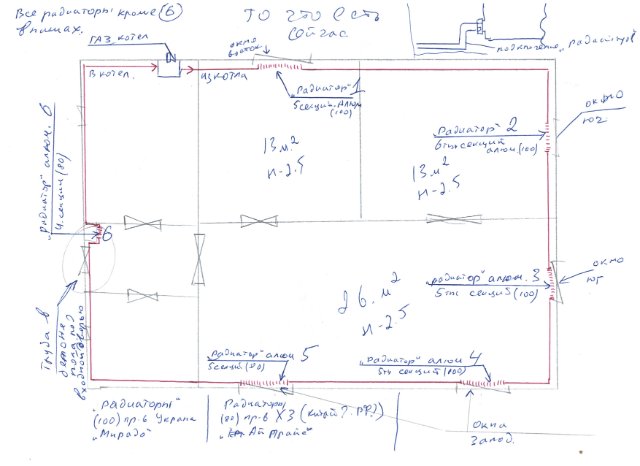 Все радиаторы кроме (6)
в нишах.
То что есть
сейчас
подключение "Радиаторов"
ГАЗ. котел
окно
восток
В котел.
из котла
"Радиатор" 1
5 секций. Алюм
(100)
13 м²
н-2.5
"Радиатор" 2
6ть секций
алюм (100)
13 м²
н-2.5
окно
юг
"Радиатор" алюм. 6
4. секции (80)
6
"радиатор" алюм. 3
5ть секций (100)
окно
юг
26. м²
н-2.5
Труба в
бетоне
пола под
входной дверью
"Радиатор" алюм 5
5 секций (80)
"Радиатор" алюм 4
5ть секций (100)
"Радиаторы"
(100) пр-в Украина
"Мирадо"
Радиаторы
(80) пр-в х3 (китай?. РФ?)
Окна
Запад.